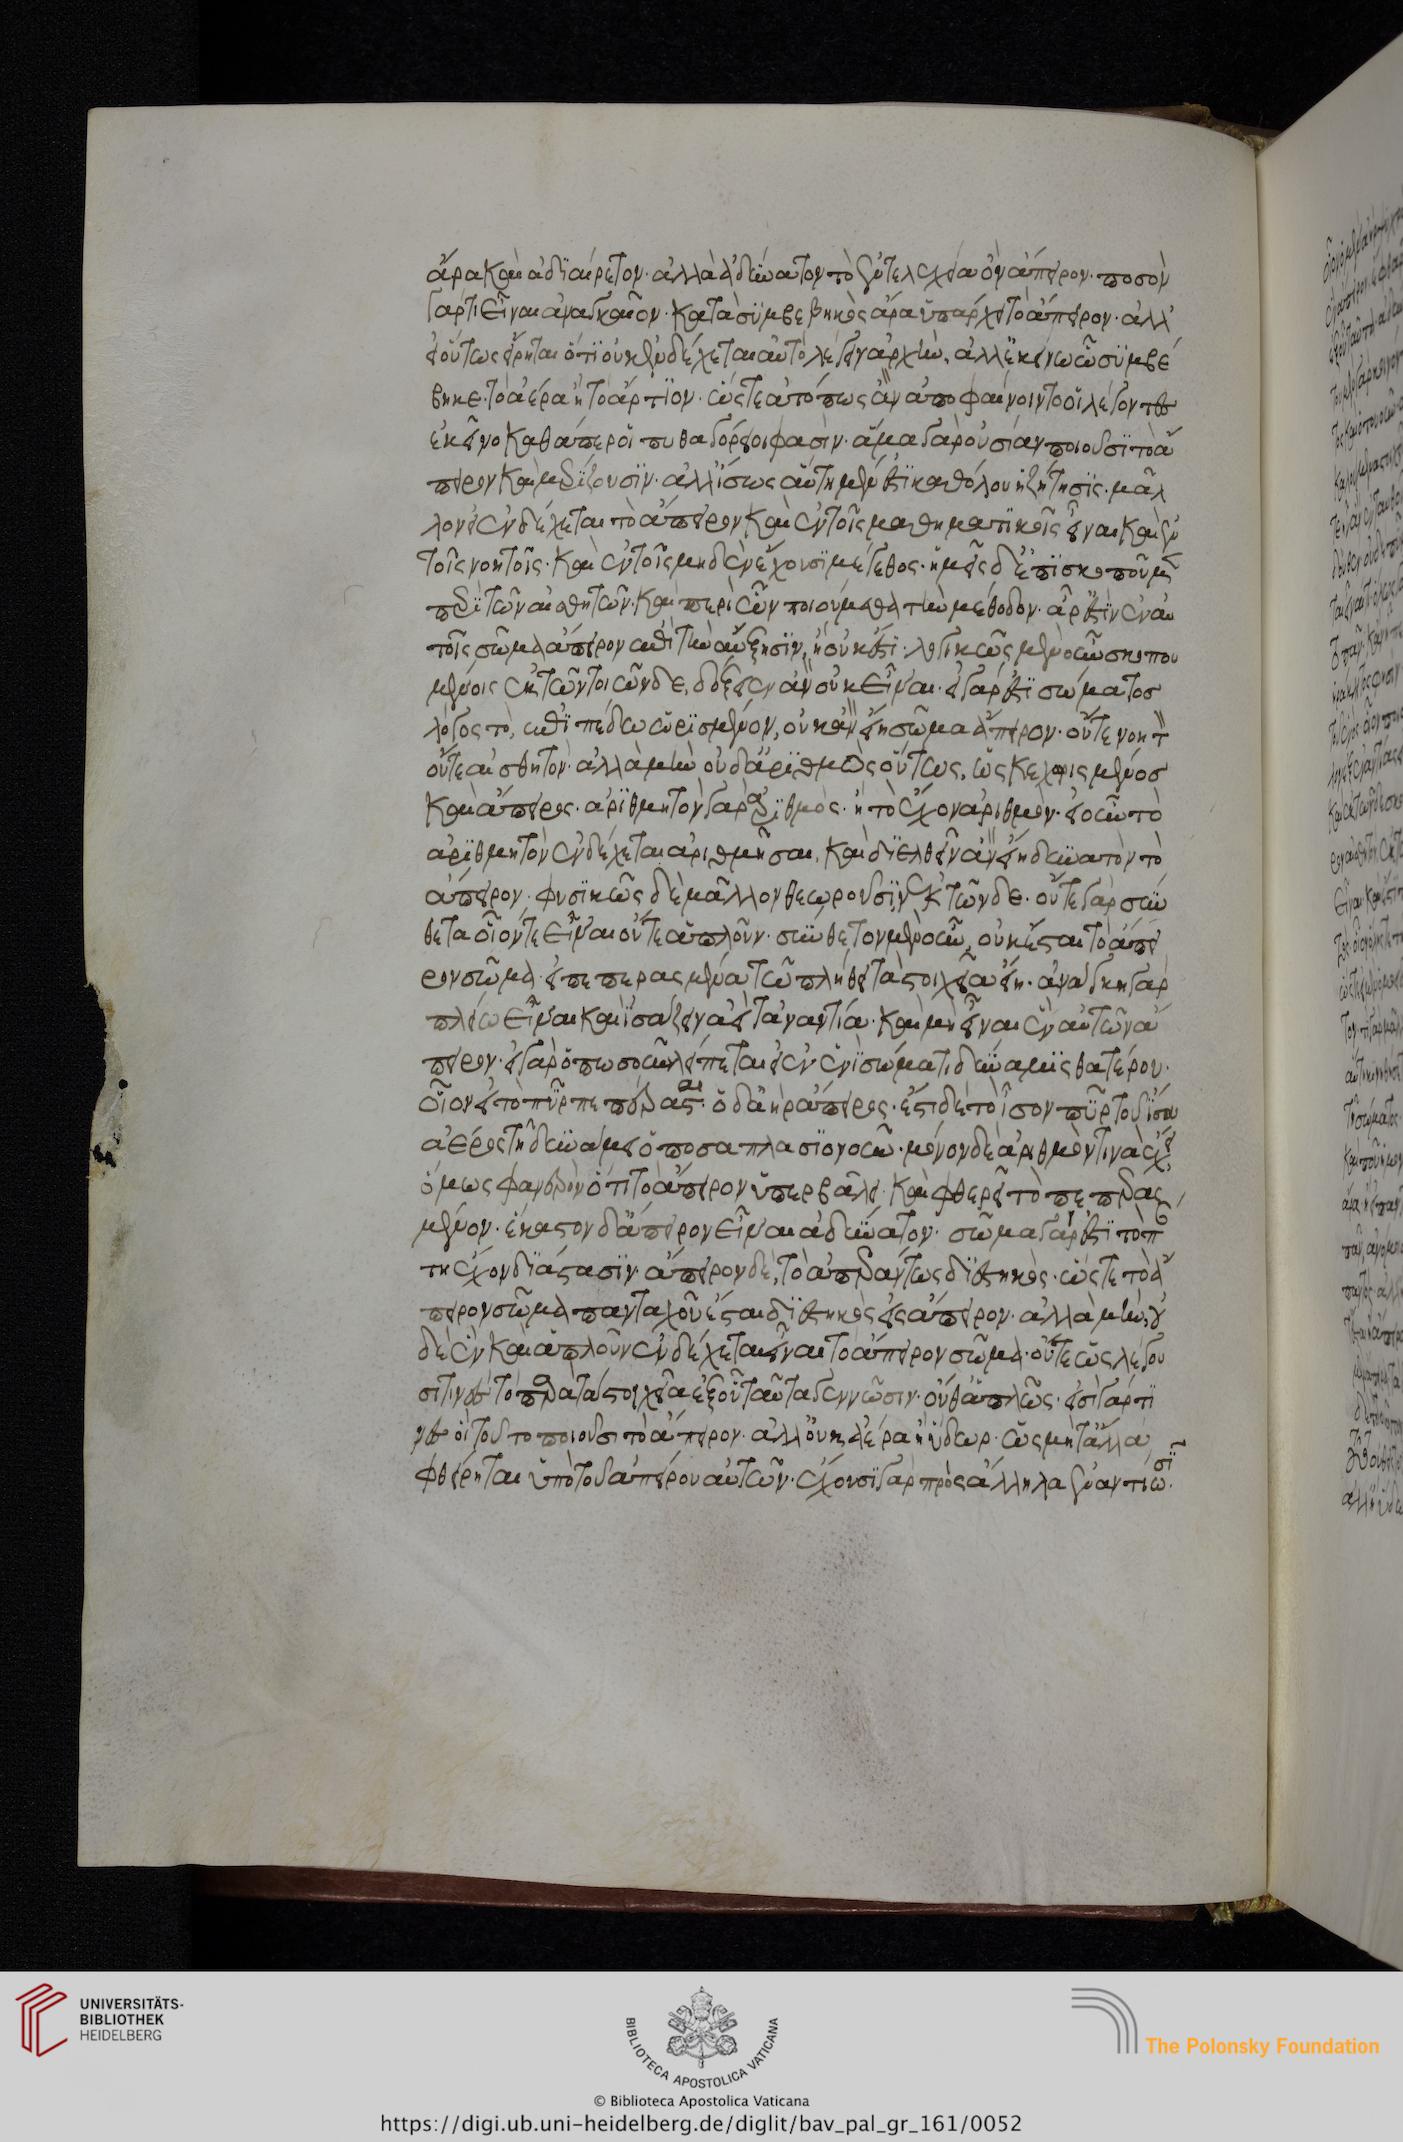 ἄρα καὶ ἀδιαίρετον· ἀλλ' ἀδύνατον τὸ ἐντελεχείᾳ ὂν ἄπειρον· ποσὸν
γάρ τι εἶναι ἀναγκαῖον· κατὰ συμβεβηκὸς ἄρα ὑπάρχει τὸ ἄπειρον· ἀλλ'
εἰ οὕτως εἴρηται ὅτι οὐκ ἐνδέχεται αὐτὸ λέγειν ἀρχήν, ἀλλ' ἐκεῖνο ᾧ συμβέ
βηκε· τὸ ἀέρα ἢ τὸ ἄρτιον· ὥστε ἀτόπως ἂν ἀποφαίνοιντο οἱ λέγοντες
ἐκεῖνο καθάπερ οἱ πυθαγόρειοι φασίν· ἅμα γὰρ οὐσίαν ποιοῦσι τὸ ἄ
πειρον καὶ μερίζουσιν· ἀλλ' ἴσως αὕτη μέν ἐστι καθόλου ἡ ζήτησις· μᾶλ
λον εἰ ἐνδέχεται τὸ ἄπειρον καὶ ἐν τοῖς μαθηματικοῖς εἶναι καὶ ἐν
τοῖς νοητοῖς· καὶ ἐν τοῖς μηδὲν ἔχουσι μέγεθος· ἡμεῖς δ' ἐπισκοποῦμεν
περὶ τῶν αἰσθητῶν· καὶ περὶ ὧν ποιούμεθα τὴν μέθοδον· ἆρ' ἐστὶν ἐν αὐ
τοῖς σῶμα ἄπειρον ἐπὶ τὴν αὔξησιν, ἢ οὐκ ἔστι· λογικῶς μὲν οὖν σκοπου
μένοις ἐκ τῶν τοιῶνδε, δόξειεν ἂν οὐκ εἶναι· εἰ γάρ ἐστι σώματος
λόγος τὸ, ἐπιπέδῳ ὡρισμένον, οὐκ ἂν εἴη σῶμα ἄπειρον· οὔτε νοητὸν
οὔτε αἰσθητόν· ἀλλὰ μὴν οὐδ' ἀριθμὸς οὕτως, ὡς κεχωρισμένος
καὶ ἄπειρος· ἀριθμητὸν γὰρ ἀριθμὸς· ἢ τὸ ἔχον ἀριθμόν· εἰ οὖν τὸ
ἀριθμητὸν ἐνδέχεται ἀριθμῆσαι, καὶ διελθεῖν ἂν εἴη δυνατὸν τὸ
ἄπειρον· φυσικῶς δὲ μᾶλλον θεωροῦσιν ἐκ τῶνδε· οὔτε γὰρ σύν
θετα οἷόν τε εἶναι οὔτε ἁπλοῦν· σύνθετον μὲν οὖν, οὐκ ἔσται τὸ ἄπει
ρον σῶμα· εἰ πεπερασμένα τῷ πλήθει τὰ στοιχεῖα εἴη· ἀνάγκη γὰρ
πλείω εἶναι καὶ ἰσάζειν ἀεὶ τἀναντία· καὶ μὴ εἶναι ἓν αὐτῶν ἄ
πειρον· εἰ γὰρ ὁποσῳοῦν λείπεται ἐν ἑνὶ σώματι δύναμις θατέρου·
οἷον εἰ τὸ πῦρ πεπέρασται· ὁ δ' ἀὴρ ἄπειρος· ἔστι δὲ τὸ ἴσον πῦρ τοῦ ἴσου
ἀέρος τῇ δυνάμει ὁποσαπλασιονοῦν· μόνον δὲ ἀριθμόν τινα ἔχει
ὅμως φανερὸν ὅτι τὸ ἄπειρον ὑπερβάλλει· καὶ φθερεῖ τὸ πεπερας
μένον· ἕκαστον δ' ἄπειρον εἶναι ἀδύνατον· σῶμα γάρ ἐστι τὸ πάν
τῃ ἔχον διάστασιν· ἄπειρον δὲ, τὸ ἀπεράντως διεστηκὸς· ὥστε τὸ ἄ
πειρον σῶμα πανταχοῦ ἔσται διεστηκὸς εἰς ἄπειρον· ἀλλὰ μὴν οὐ
δὲ ἓν καὶ ἁπλοῦν ἐνδέχεται εἶναι τὸ ἄπειρον σῶμα· οὔτε ὡς λέγου
σί τινες τὸ παρὰ τὰ στοιχεῖα ἐξ οὗ ταῦτα γεννῶσιν· οὔθ' ἁπλῶς· εἰσὶ γάρ τι
νες οἳ τοῦτο ποιοῦσι τὸ ἄπειρον· ἀλλ' οὐκ ἀέρα ἢ ὕδωρ· ὡς μὴ τἆλλα
φθείρηται ὑπὸ τοῦ ἀπείρου αὐτῶν· ἔχουσι γὰρ πρὸς ἄλληλα ἐναντίωσιν·
UNIVERSITÄTS-
BIBLIOTHEK
HEIDELBERG
BIBLIOTECA APOSTOLICA VATICANA
The Polonsky Foundation
© Biblioteca Apostolica Vaticana
https://digi.ub.uni-heidelberg.de/diglit/bav_pal_gr_161/0052